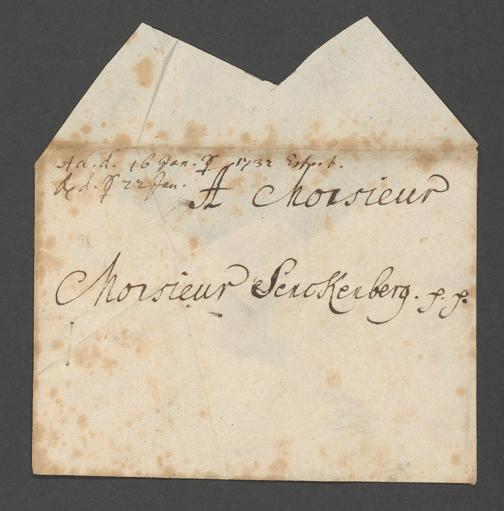 Acc. d. 16 Jan. 1732
d. 22 Jan.
A Monsieur
Monsieur Senckenberg. p. p.